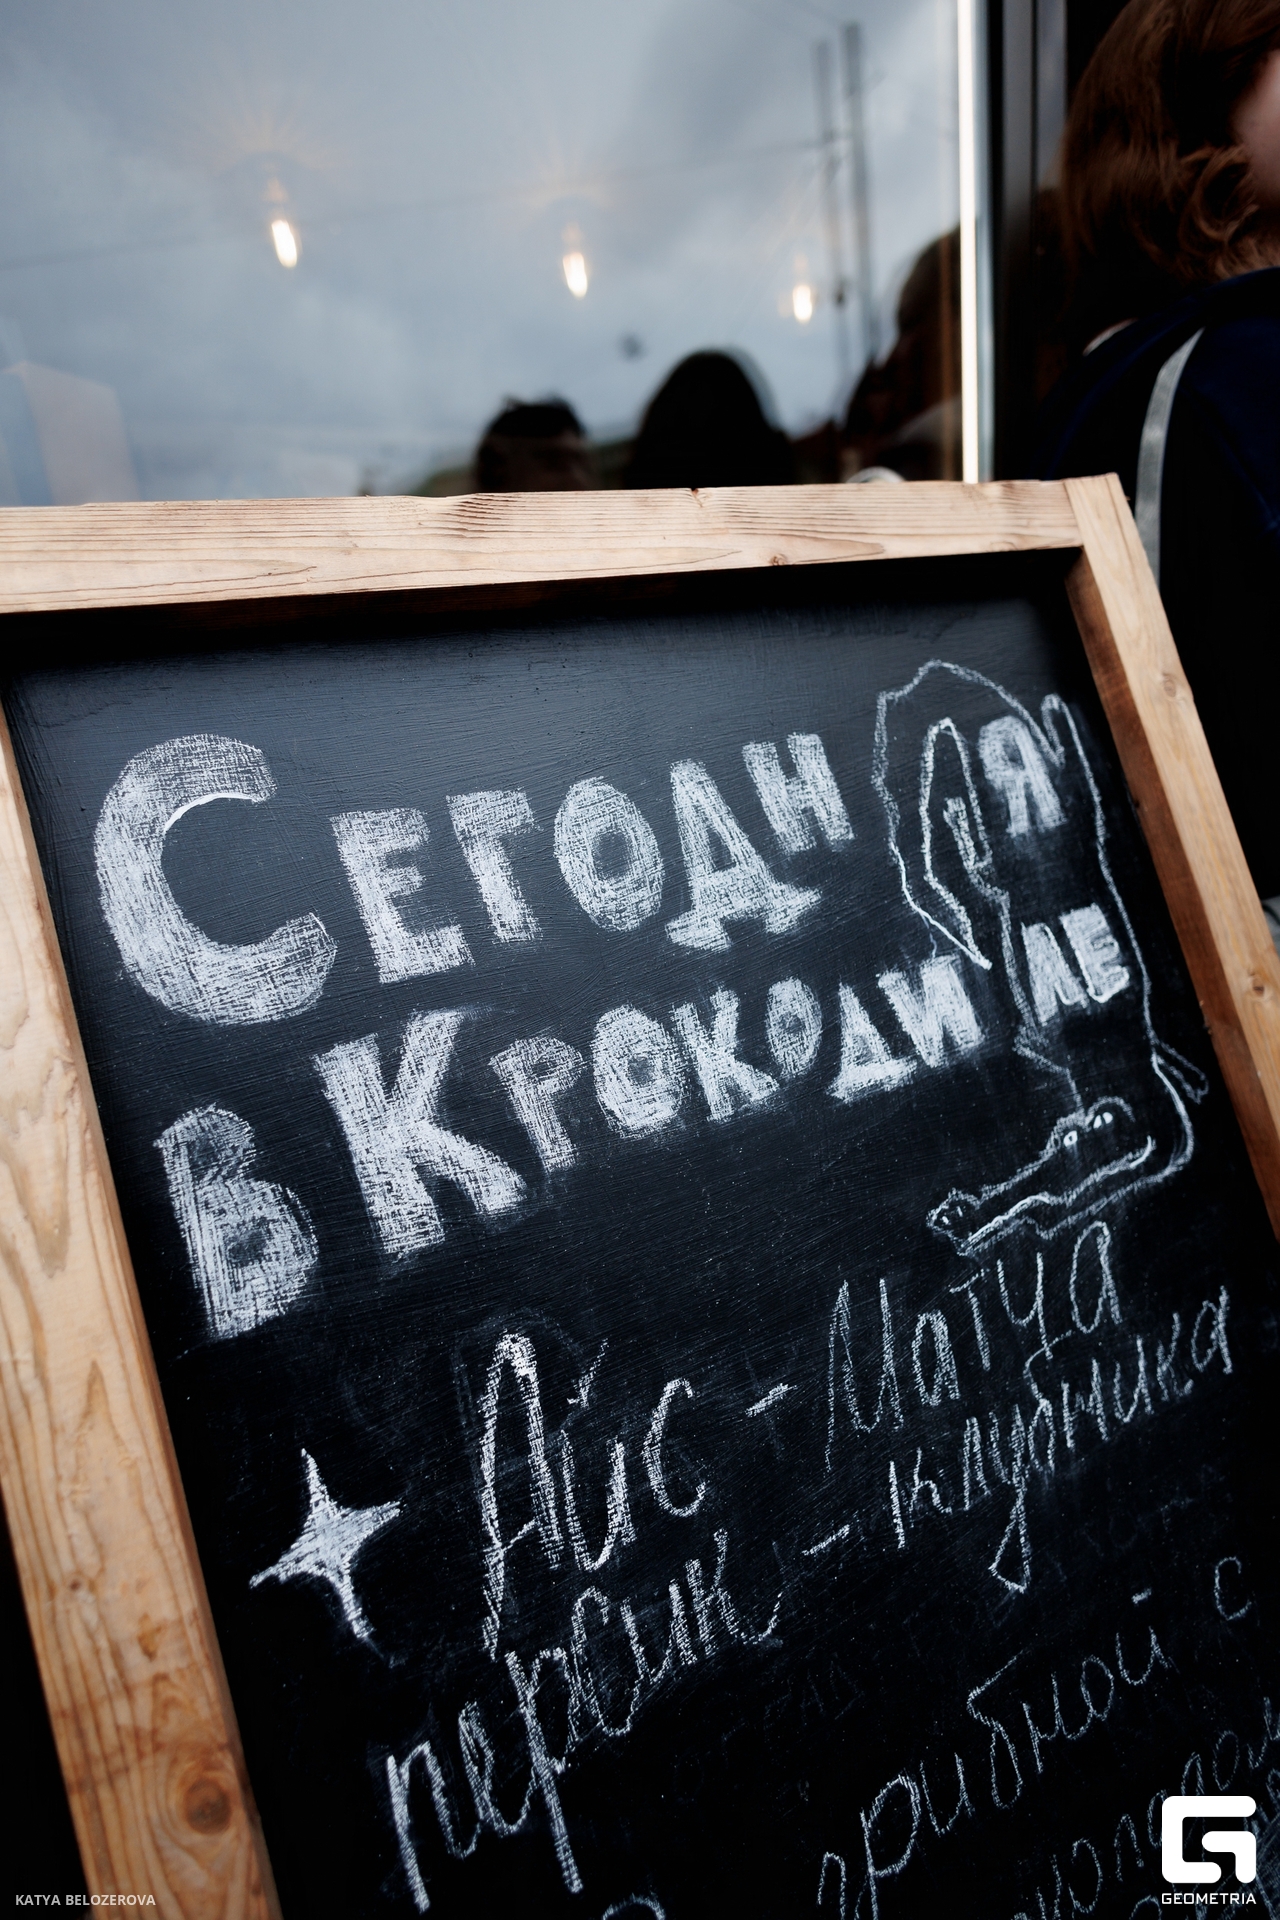 СЕГОДНЯ
В КРОКОДИЛЕ
Айс - Матча
персик - клубника
грибной с
KATYA BELOZEROVA
GEOMETRIA